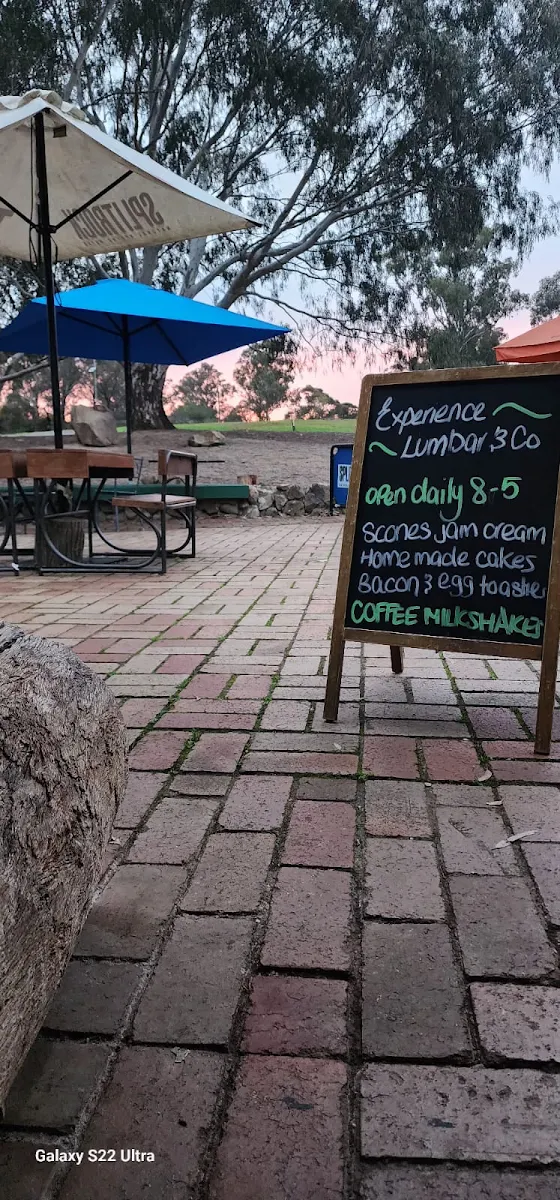 SPLITROCK
Experience
~ Lumbar & Co
open daily 8-5
scones jam cream
Home made cakes
Bacon & egg toastie
COFFEE MILKSHAKES
SPL
Galaxy S22 Ultra